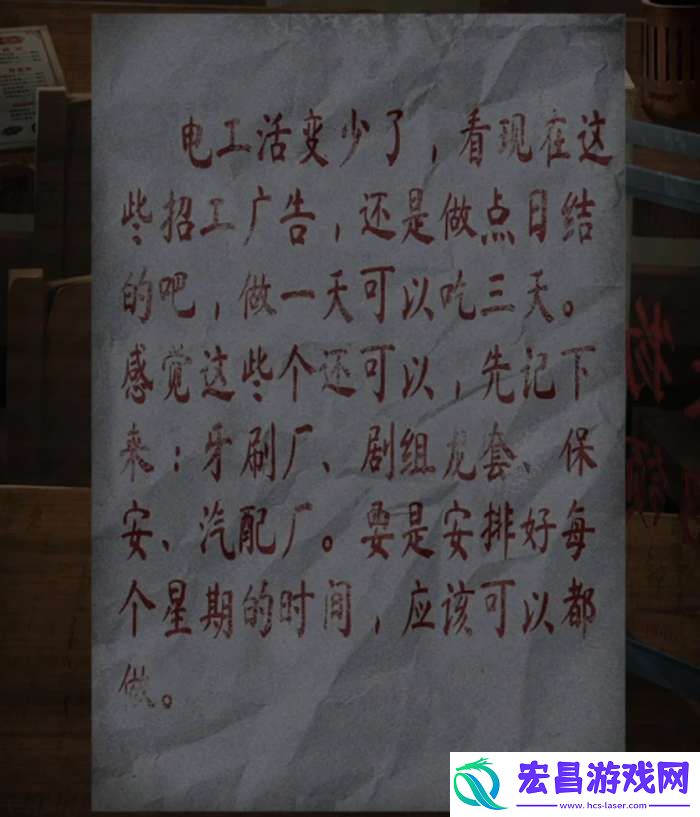 电工活变少了，看现在这
些招工广告，还是做点日结
的吧，做一天可以吃三天。
感觉这些个还可以，先记下
来：牙刷厂、剧组龙套、保
安、汽配厂。要是安排好每
个星期的时间，应该可以都
做。
宏昌游戏网
www.hcs-laser.com